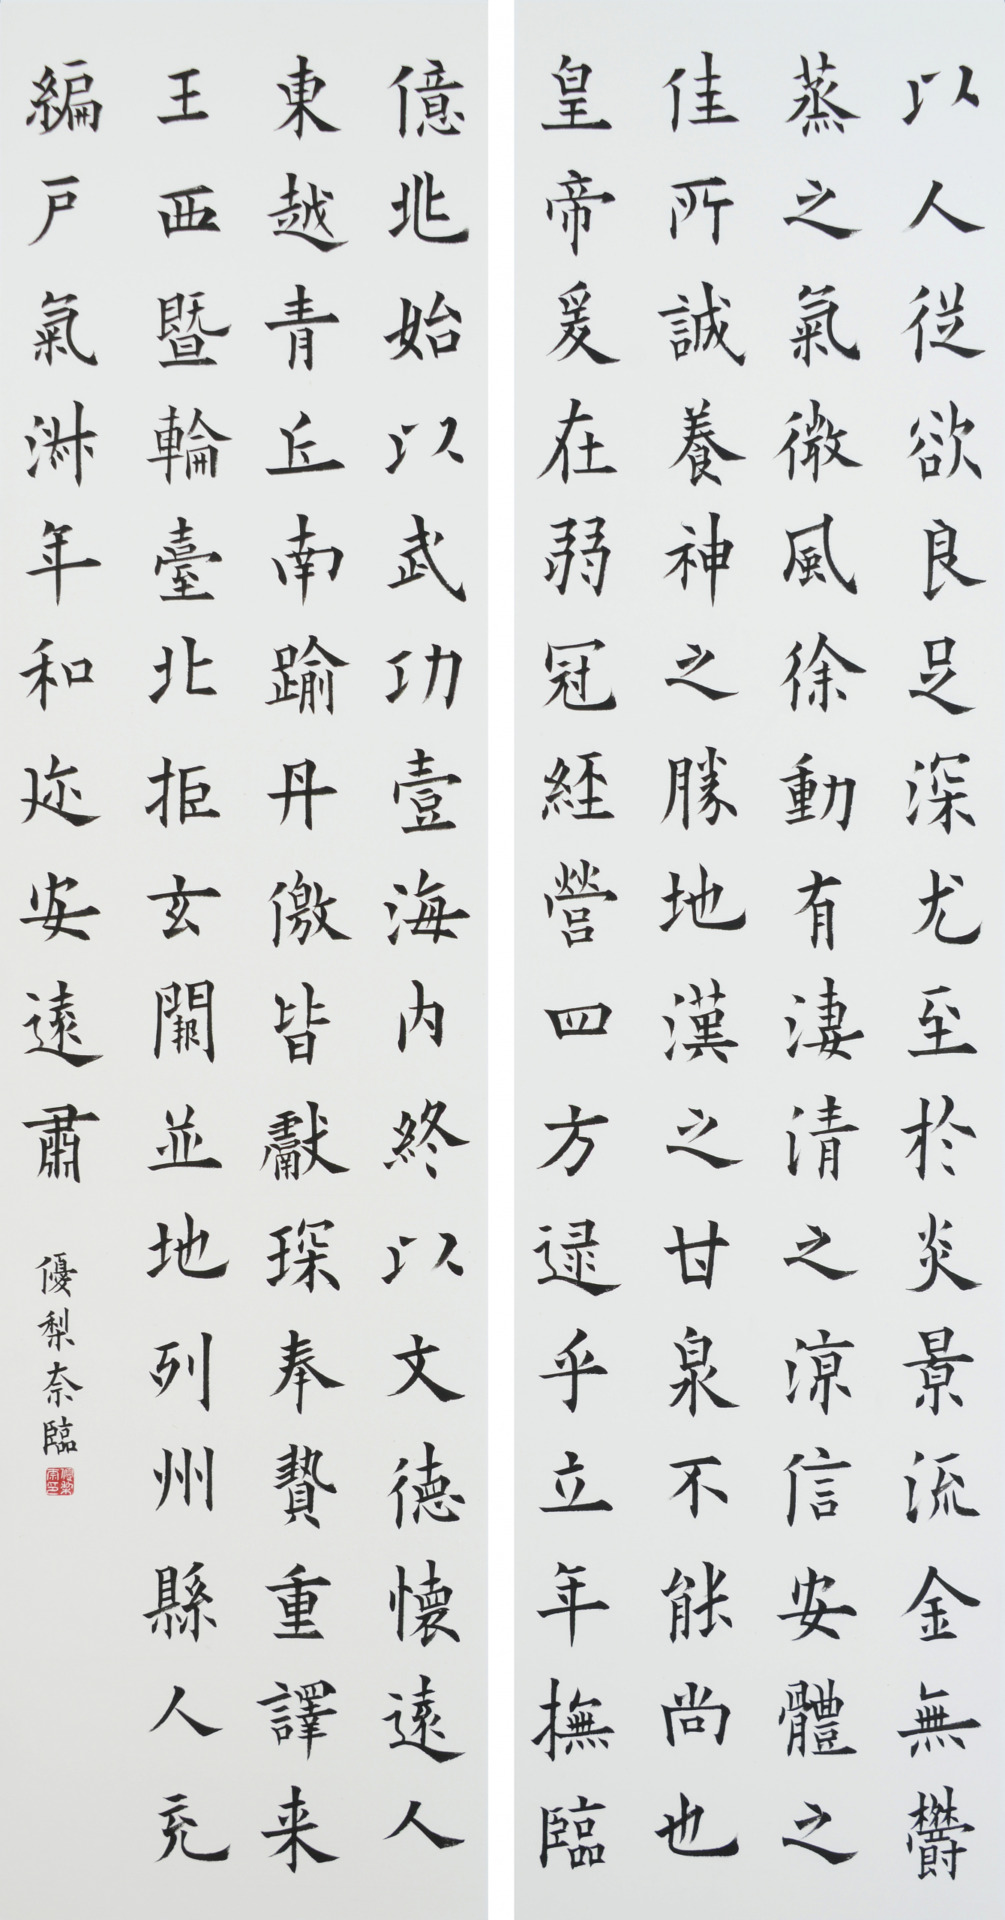 以人従欲良足深尤至於炎景流金無鬱
蒸之氣微風徐動有淒清之涼信安體之
佳所誠養神之勝地漢之甘泉不能尚也
皇帝爰在弱冠經營四方逮乎立年撫臨
億兆始以武功壹海内終以文德懷遠人
東越青丘南踰丹儌皆獻琛奉贄重譯来
王西曁輪臺北拒玄闕並地列州縣人充
編戸氣淑年和迩安遠肅
優梨奈臨